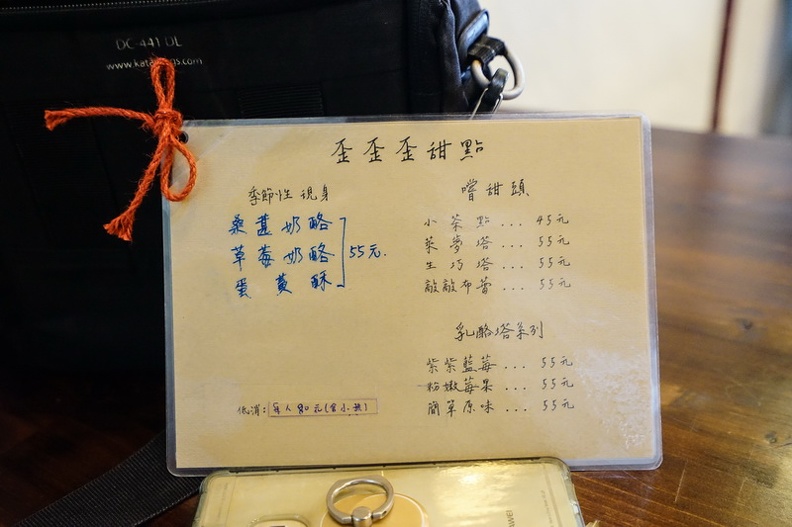 DC-441 DL
歪歪歪甜點
季節性現身
桑葚奶酪
草莓奶酪
蛋黃酥
55元.
嚐甜頭
小茶點...45元
萊夢塔...55元
生巧塔...55元
敲敲布蕾...55元
乳酪塔系列
紫紫藍莓...55元
粉嫩莓果...55元
簡草原味...55元
低消：每人80元(含小孩)